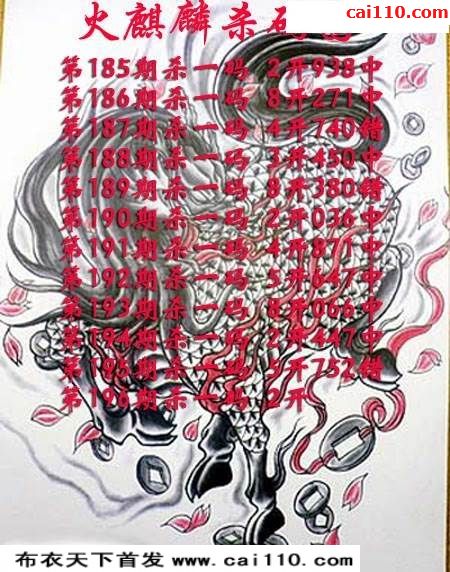 cai110.com
火麒麟杀码
第185期杀一码 2开938中
第186期杀一码 8开271中
第187期杀一码 4开740错
第188期杀一码 3开450中
第189期杀一码 8开380错
第190期杀一码 2开036中
第191期杀一码 4开871中
第192期杀一码 5开647中
第193期杀一码 8开066中
第194期杀一码 2开447中
第195期杀一码 5开752错
第196期杀一码 2开
布衣天下首发 www.cai110.com